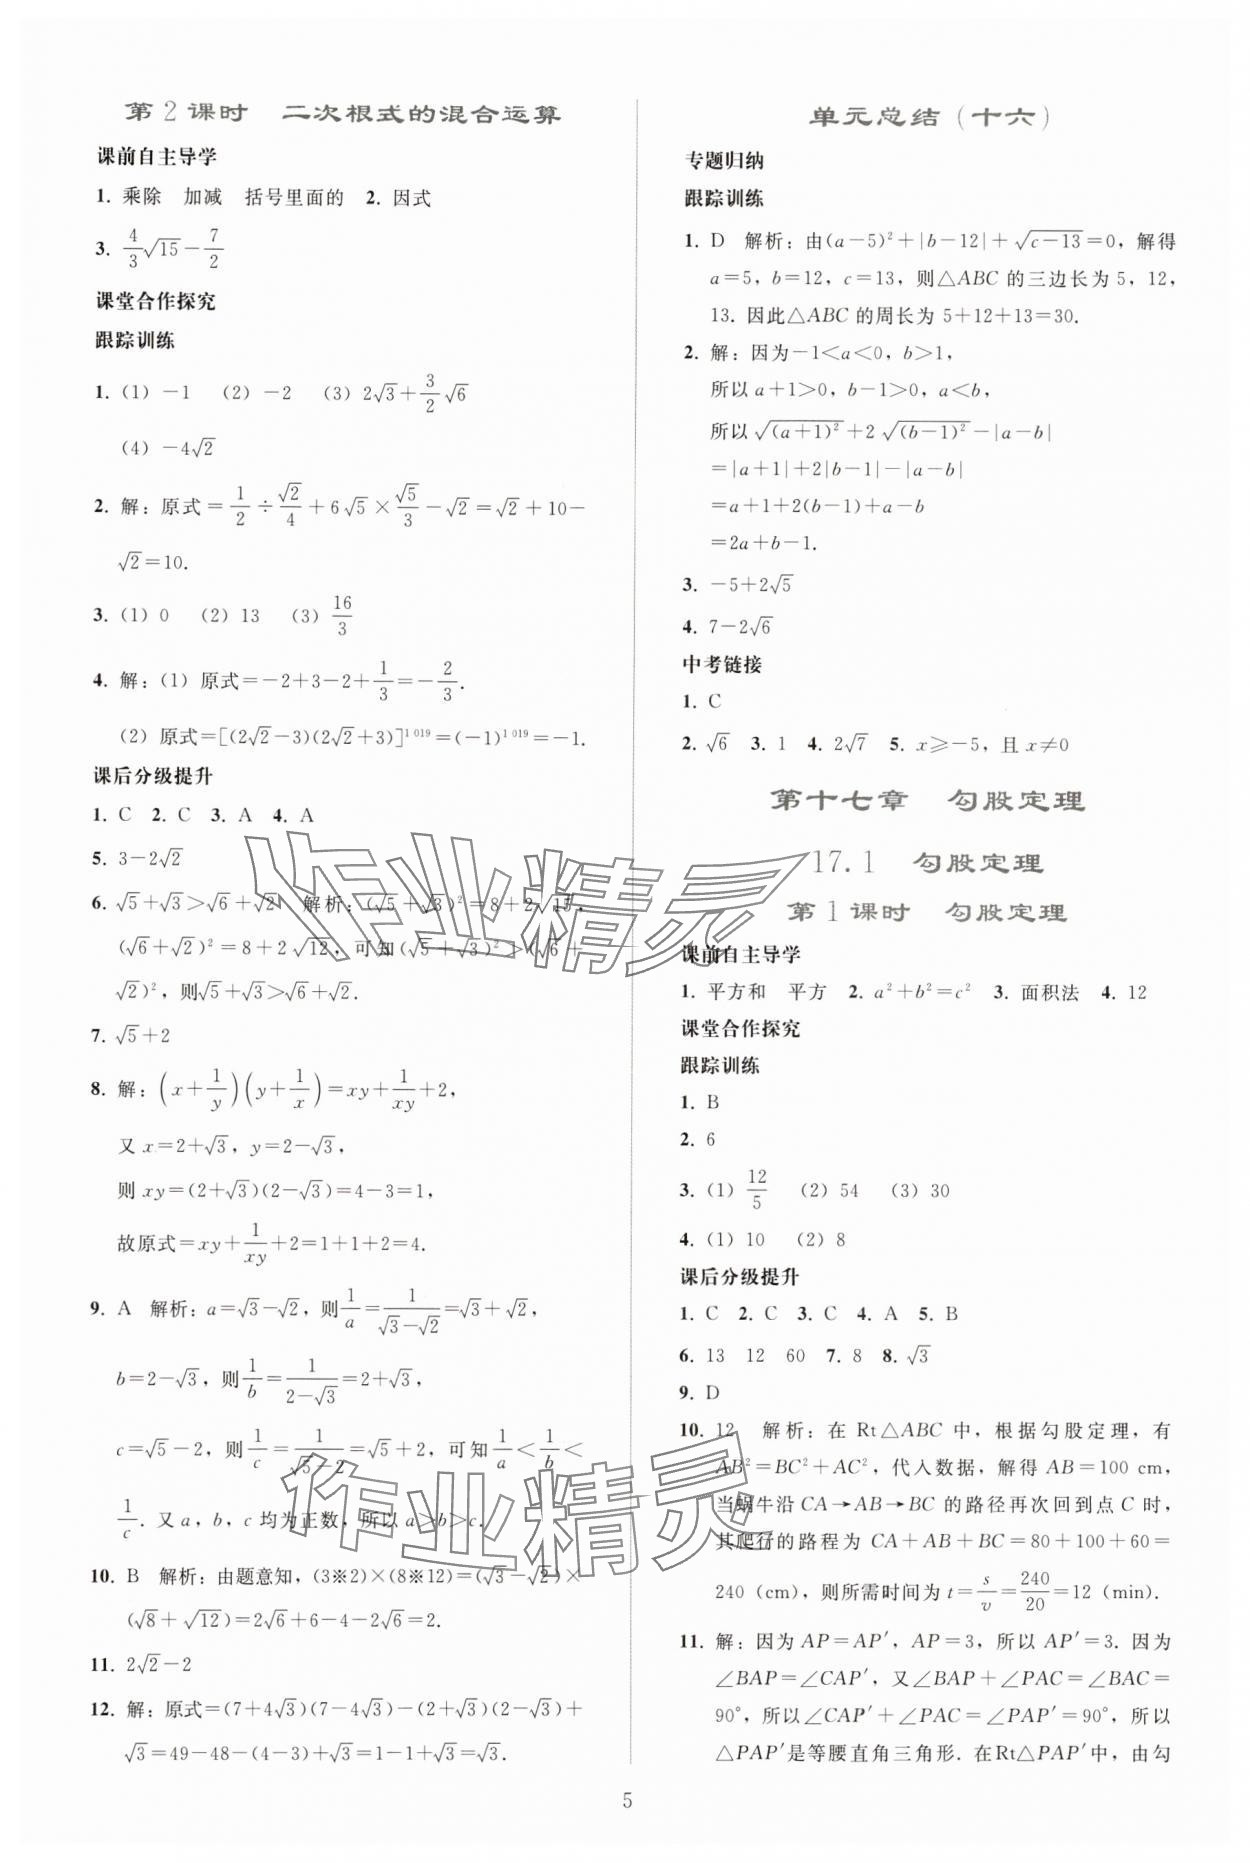 第2课时　二次根式的混合运算
课前自主导学
1. 乘除　加减　括号里面的　2. 因式
3. $\frac{4}{3}\sqrt{15}-\frac{7}{2}$
课堂合作探究
跟踪训练
1. (1) －1　(2) －2　(3) $2\sqrt{3}+\frac{3}{2}\sqrt{6}$
(4) $-4\sqrt{2}$
2. 解：原式＝$\frac{1}{2}÷\frac{\sqrt{2}}{4}+6\sqrt{5}×\frac{\sqrt{5}}{3}-\sqrt{2}=\sqrt{2}+10-$
$\sqrt{2}=10$.
3. (1) 0　(2) 13　(3) $\frac{16}{3}$
4. 解：(1) 原式＝$-2+3-2+\frac{1}{3}=-\frac{2}{3}$.
(2) 原式＝$[(2\sqrt{2}-3)(2\sqrt{2}+3)]^{1 019}=(-1)^{1 019}=-1$.
课后分级提升
1. C　2. C　3. A　4. A
5. $3-2\sqrt{2}$
6. $\sqrt{5}+\sqrt{3}>\sqrt{6}+\sqrt{2}$　解析：$(\sqrt{5}+\sqrt{3})^2=8+2\sqrt{15}$,
$(\sqrt{6}+\sqrt{2})^2=8+2\sqrt{12}$, 可知$(\sqrt{5}+\sqrt{3})^2>(\sqrt{6}+$
$\sqrt{2})^2$, 则$\sqrt{5}+\sqrt{3}>\sqrt{6}+\sqrt{2}$.
7. $\sqrt{5}+2$
8. 解：$\left(x+\frac{1}{y}\right)\left(y+\frac{1}{x}\right)=xy+\frac{1}{xy}+2$,
又 $x=2+\sqrt{3}$, $y=2-\sqrt{3}$,
则 $xy=(2+\sqrt{3})(2-\sqrt{3})=4-3=1$,
故原式＝$xy+\frac{1}{xy}+2=1+1+2=4$.
9. A　解析：$a=\sqrt{3}-\sqrt{2}$, 则$\frac{1}{a}=\frac{1}{\sqrt{3}-\sqrt{2}}=\sqrt{3}+\sqrt{2}$,
$b=2-\sqrt{3}$, 则$\frac{1}{b}=\frac{1}{2-\sqrt{3}}=2+\sqrt{3}$,
$c=\sqrt{5}-2$, 则$\frac{1}{c}=\frac{1}{\sqrt{5}-2}=\sqrt{5}+2$, 可知$\frac{1}{a}<\frac{1}{b}<$
$\frac{1}{c}$. 又 a, b, c 均为正数, 所以 a＞b＞c.
10. B　解析：由题意知, (3※2)×(8※12)＝$(\sqrt{3}-\sqrt{2})×$
$(\sqrt{8}+\sqrt{12})=2\sqrt{6}+6-4-2\sqrt{6}=2$.
11. $2\sqrt{2}-2$
12. 解：原式＝$(7+4\sqrt{3})(7-4\sqrt{3})-(2+\sqrt{3})(2-\sqrt{3})+$
$\sqrt{3}=49-48-(4-3)+\sqrt{3}=1-1+\sqrt{3}=\sqrt{3}$.
单元总结（十六）
专题归纳
跟踪训练
1. D　解析：由$(a-5)^2+|b-12|+\sqrt{c-13}=0$, 解得
a＝5, b＝12, c＝13, 则△ABC 的三边长为 5, 12,
13. 因此△ABC 的周长为 5＋12＋13＝30.
2. 解：因为－1＜a＜0, b＞1,
所以 a＋1＞0, b－1＞0, a＜b,
所以 $\sqrt{(a+1)^2}+2\sqrt{(b-1)^2}-|a-b|$
＝|a＋1|＋2|b－1|－|a－b|
＝a＋1＋2(b－1)＋a－b
＝2a＋b－1.
3. $-5+2\sqrt{5}$
4. $7-2\sqrt{6}$
中考链接
1. C
2. $\sqrt{6}$　3. 1　4. $2\sqrt{7}$　5. x≥－5, 且 x≠0
第十七章　勾股定理
17.1　勾股定理
第1课时　勾股定理
课前自主导学
1. 平方和　平方　2. $a^2+b^2=c^2$　3. 面积法　4. 12
课堂合作探究
跟踪训练
1. B
2. 6
3. (1) $\frac{12}{5}$　(2) 54　(3) 30
4. (1) 10　(2) 8
课后分级提升
1. C　2. C　3. C　4. A　5. B
6. 13　12　60　7. 8　8. $\sqrt{3}$
9. D
10. 12　解析：在 Rt△ABC 中, 根据勾股定理, 有
$AB^2=BC^2+AC^2$, 代入数据, 解得 AB＝100 cm,
当蜗牛沿 CA→AB→BC 的路径再次回到点 C 时,
其爬行的路程为 CA＋AB＋BC＝80＋100＋60＝
240 (cm), 则所需时间为 $t=\frac{s}{v}=\frac{240}{20}=12$ (min).
11. 解：因为 AP＝AP′, AP＝3, 所以 AP′＝3. 因为
∠BAP＝∠CAP′, 又∠BAP＋∠PAC＝∠BAC＝
90°, 所以∠CAP′＋∠PAC＝∠PAP′＝90°, 所以
△PAP′是等腰直角三角形. 在Rt△PAP′中, 由勾
5
作业精灵
作业精灵